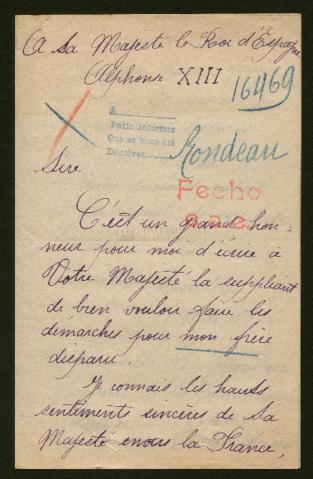 A Sa Majesté le Roi d'Espagne
Alphonse XIII
16469
A
Pedir informes
Que se hace así
Devolver
Rondeau
Sire
Fecho
C'est un grand hon-
neur pour moi d'écrire à
Votre Majesté la suppliant
de bien vouloir faire les
démarches pour mon frère
disparu.
Je connais les hauts
sentiments sincères de Sa
Majesté envers la France,